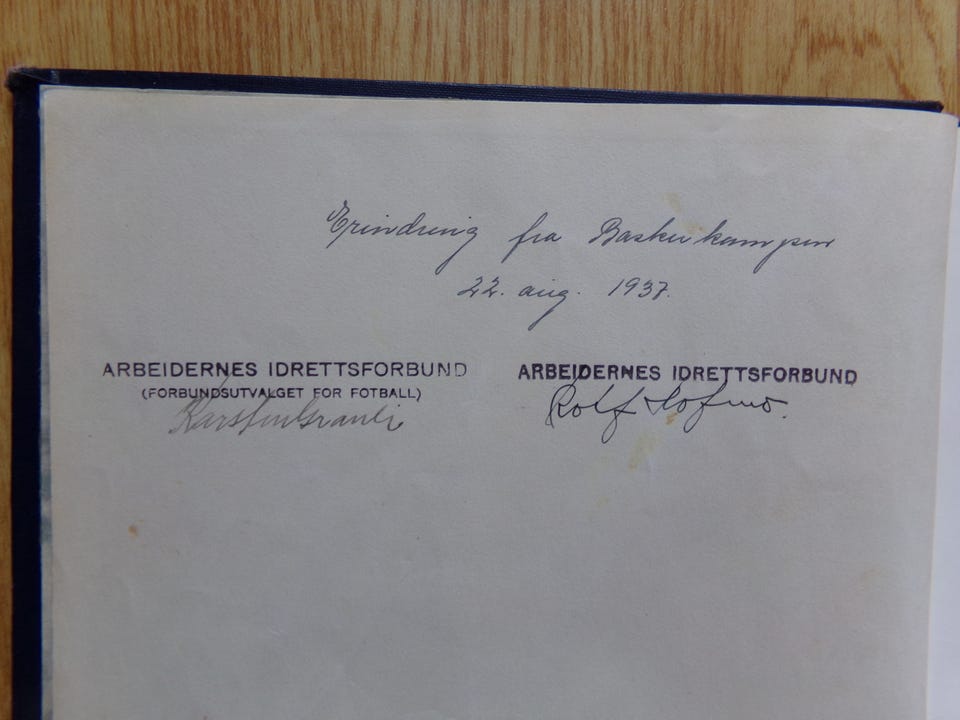 Erindring fra Baskerkampen
22. aug. 1937.
ARBEIDERNES IDRETTSFORBUND
(FORBUNDSUTVALGET FOR FOTBALL)
Karsten Granli
ARBEIDERNES IDRETTSFORBUND
Rolf Hofmo.